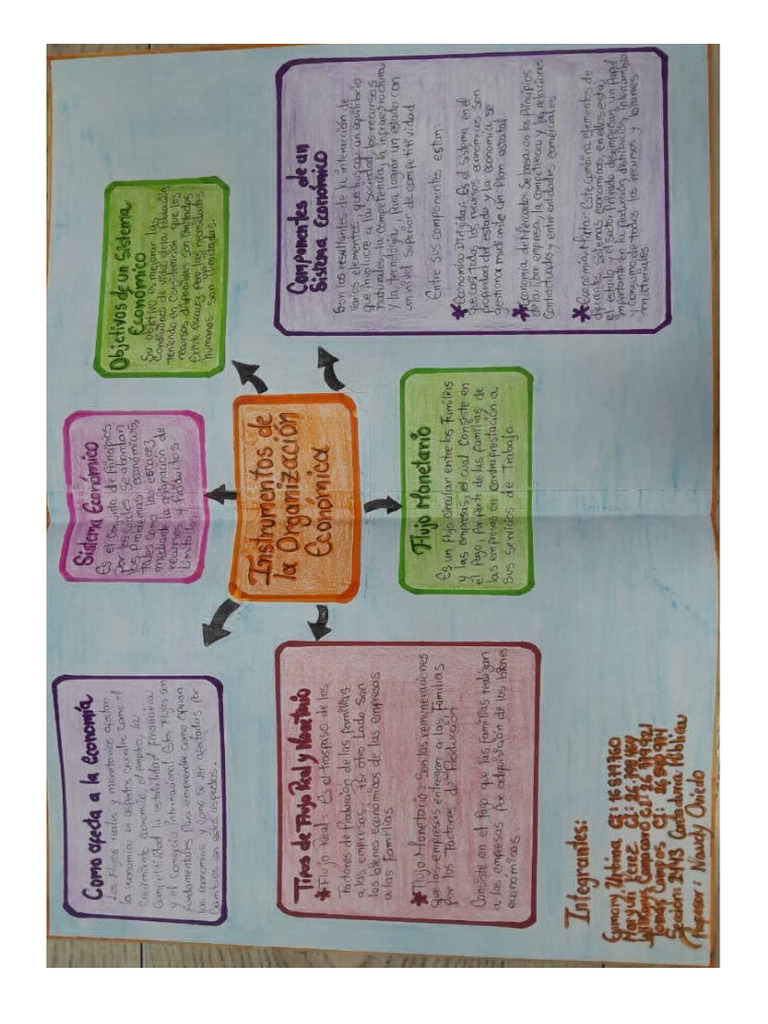 Como afecta a la economía
Los flujos reales y monetarios afectan
la economía en aspectos cruciales como el
crecimiento económico, el empleo, la
Competitividad la estabilidad financiera
y el Comercio internacional. Estos flujos son
fundamentales para emprender como operan
las economías y como se ven afectadas por
Cambios en estos aspectos.
Sistema Económico
Es el Conjunto de Principios
por los cuales se abordan
los problemas económicos,
tales como las escasez
mediante la asignación de
recursos y Productos
limitado.
Objetivos de un Sistema
Económico
Su objetivo es mejorar las
Condiciones de vida de la Población
teniendo en Consideración que los
recursos disponibles son limitados
Existe escasez Para las necesidades
humanas: son ilimitadas.
Instrumentos de
la Organización
Económica
Tipos de Flujo Real y Monetario
* Flujo Real: Es el traspaso de los
factores de Producción de las familias
a las empresas, Por otro Lado Son
los bienes económicos de las empresas
a las familias
* Flujo Monetario: Son las remuneraciones
que las empresas entregan a las Familias
por los Factores de Producción
Consiste en el Pago que las familias realizan
a las empresas Por adquisición de los bienes
económicos.
Flujo Monetario
Es un flujo circular entre las Familias
y las empresas, el cual Consiste en
el Pago, Por Parte de las familias de
las empresas en Contraprestación a
Sus servicios de Trabajo
Componentes de un
Sistema Económico
Son los resultantes de la interacción de
varios elementos, que buscan un equilibrio
que involucre a la Sociedad, los recursos
naturales, la Competencia, la infraestructura
y la tecnología, Para lograr un estado con
un nivel Superior de Competitividad
Entre sus componentes estan:
* Economía Dirigida: Es el Sistema en el
que casi todos los recursos económicos son
propiedad del estado y la economía se
gestiona mediante un Plan estatal
* Economía del Mercado: Se basa en los Principios
de la libre empresa, la competencia y las relaciones
Contractuales y entre entidades comerciales
* Economía Mixta: Este combina elementos de
diferentes sistemas económicos, en ellos esta
el estado y el sector Privado desempeñan un Papel
importante en la Producción, distribución, intercambio
y consumo de todos los recursos y bienes
materiales.
Integrantes:
Urbina CI: 16 679 760
Perez CI:
Williams Campcano CI:
Tomás Campos CI:
Sección: 2443 Contaduría Pública
Profesor: Oviedo